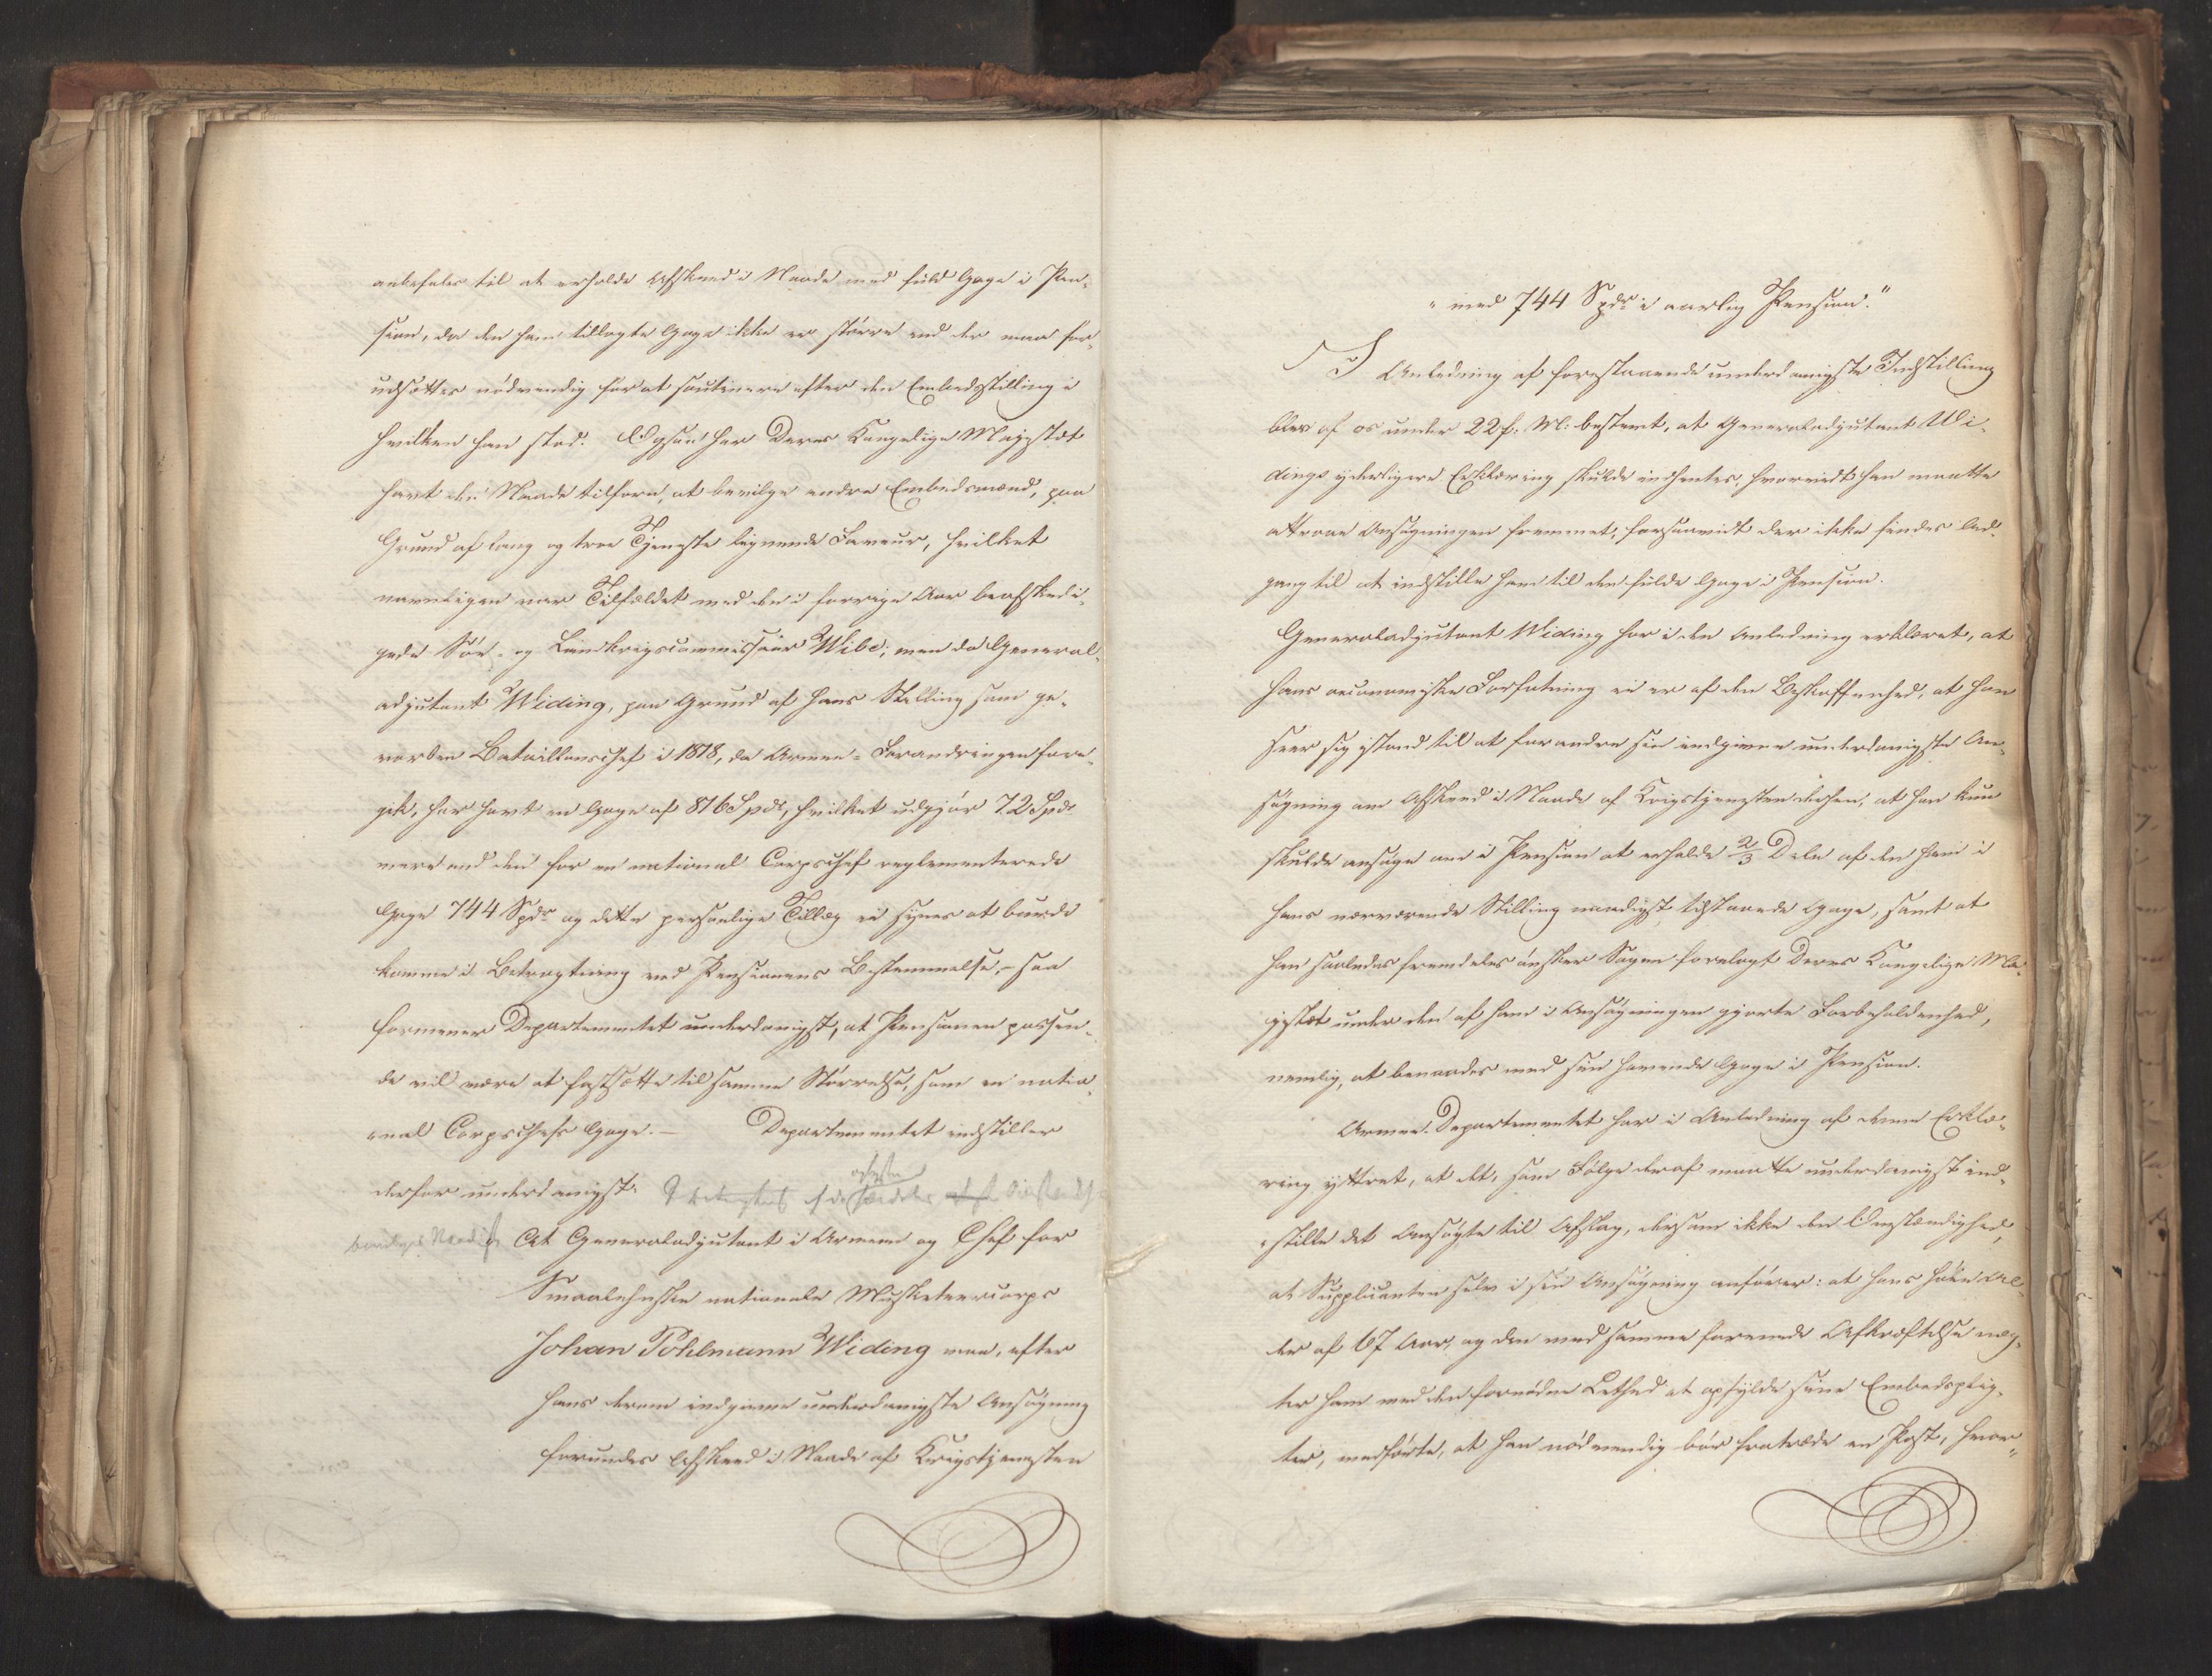 anbefales til at erholde Afskeed i Naade med fuld Gage i Pen-
sion, da den ham tillagte Gage ikke er større end der maa for-
udsættes nödvendig for at soutinere efter den Embedsstilling i
hvilken han stod. Ligesom har Deres Kongelige Majestæt
havt den Naade tilforn, at bevilge andre Embedsmænd, paa
Grund af lang og troe Tjeneste lignende Faveur, hvilket
navnligen var Tilfældet med den i forrige Aar beafskedi-
gede Söe- og Landkrigscommissair Wibe; men da General-
adjutant Widing, paa Grund af hans Stilling som ge-
vorben Bataillonschef i 1818, da Armee-Forandringen fore-
gik, har havt en Gage af 816 Spd, hvilket udgjör 72 Spd
mere end den for en national Corpschef reglementerede
Gage 744 Spdr og dette personlige Tillæg ei synes at burde
komme i Betragtning ved Pensionens Bestemmelse, – saa
formener Departementet underdanigst, at Pensionen passen-
de vil være at fastsætte til samme Störrelse, som en natio-
onal Corpschefs Gage. – Departementet indstiller
derfor underdanigst:
Naadigst At Generaladjutant i Armeen og Chef for
Smaalehnske nationale Musketeercorps
Johan Pohlmann Widing maa, efter
hans derom indgivne underdanigste Ansögning
forundes Afskeed i Naade af Krigstjenesten
"med 744 Spdr i aarlig Pension."
I Anledning af forestaaende underdanigste Indstilling
blev af os under 22 f. M. bestemt, at Generaladjutant Wi-
dings yderligere Erklæring skulde indhentes, hvorvidt han maatte
attraae Ansögningen fremmet, forsaavidt der ikke findes Ad-
gang til at indstille ham til den fulde Gage i Pension.
Generaladjutant Widing har i den Anledning erklæret, at
hans oeconomiske Forfatning ei er af den Beskaffenhed, at han
seer sig istand til at forandre sin indgivne underdanigste An-
sögning om Afskeed i Naade af Krigstjenesten derhen, at han kun
skulde ansöge om i Pension at erholde 2/3 Dele af den ham i
hans nærværende Stilling naadigst tilstaaede Gage, samt at
han saaledes fremdeles önsker Sagen forelagt Deres Kongelige Ma-
jestæt under den af ham i Ansögningen gjorte Forbeholdenhed,
nemlig, at benaades med sin havende Gage i Pension.
Armee-Departementet har i Anledning af denne Erklæ-
ring yttret, at det, som Fölge deraf maatte underdanigst ind-
stille det Ansögte til Afslag, dersom ikke den Omstændighed,
at Supplicanten selv i sin Ansögning anförer: at hans höie Al-
der af 67 Aar, og den med samme forenede Afkræftelse næg-
ter ham med den fornödne Lethed at opfylde sine Embedsplig-
ter, medförte, at han nödvendig bör fratræde en Post, hvor-